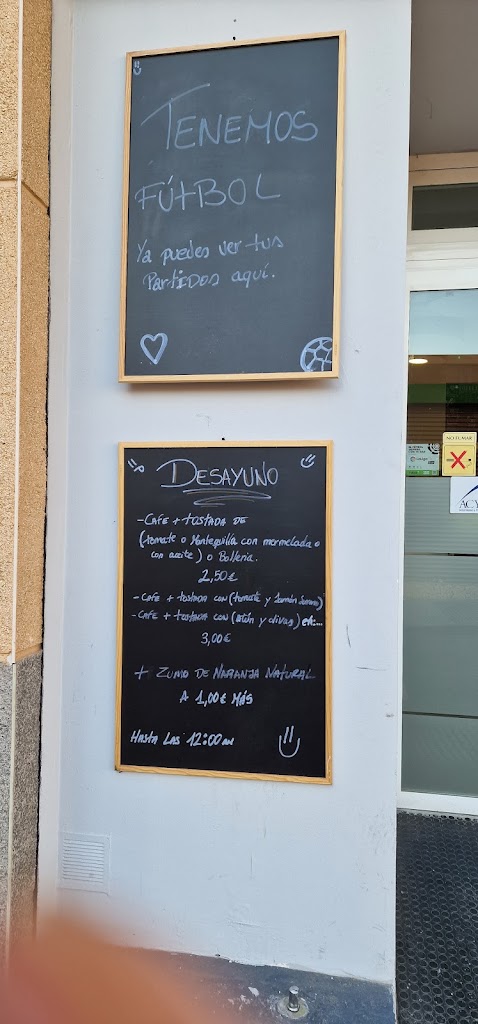 TENEMOS
FÚTBOL
Ya puedes ver tus
Partidos aquí.
DESAYUNO
- CAFE + TOSTADA DE
(tomate o Mantequilla con mermelada o
con aceite) o Bolleria.
2,50€
- CAFE + TOSTADA CON (tomate y Jamón Serrano)
- CAFE + TOSTADA CON (atún y olivas) etc...
3,00€
+ ZUMO DE NARANJA NATURAL
A 1,00€ MÁS
HASTA LAS 12:00 am
NO FUMAR
ACY